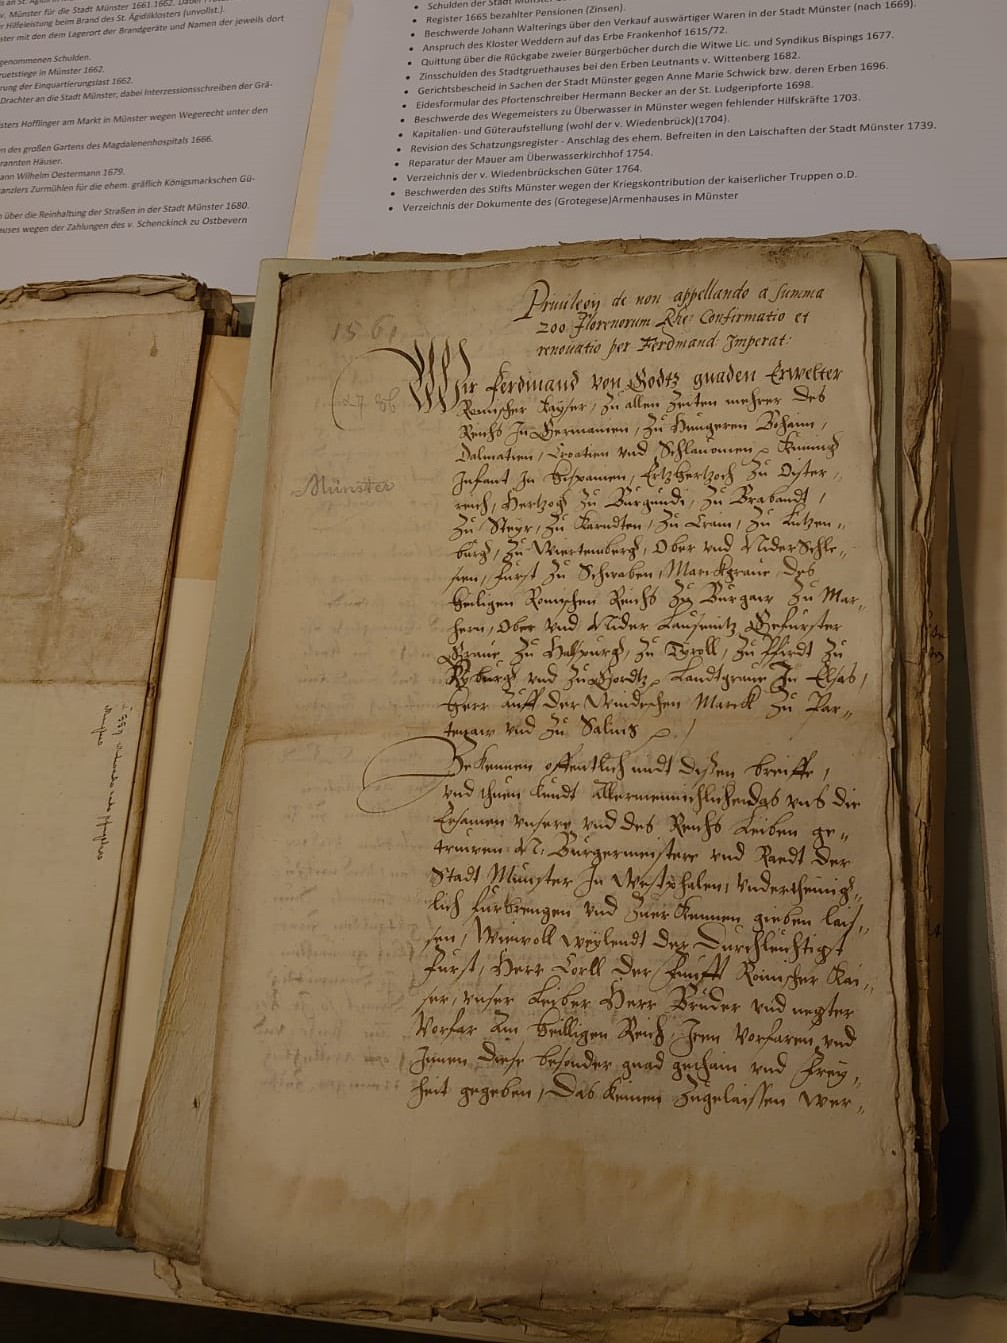 v. Münster für die Stadt Münster 1661.1662.
r Hilfeleistung beim Brand des St. Ägidiiklosters (unvollst.).
ster mit den dem Lagerort der Brandgeräte und Namen der jeweils dort
genommenen Schulden.
ruetstiege in Münster 1662.
rung der Einquartierungslast 1662.
Drachter an die Stadt Münster, dabei Interzessionsschreiben der Grä-
isters Hofflinger am Markt in Münster wegen Wegerecht unter den
n des großen Gartens des Magdalenenhospitals 1666.
rannten Häuser.
ann Wilhelm Oestermann 1679.
anzlers Zurmühlen für die ehem. gräflich Königsmarkschen Gü-
n über die Reinhaltung der Straßen in der Stadt Münster 1680.
auses wegen der Zahlungen des v. Schenckinck zu Ostbevern
• Schulden der Stadt Münster
• Register 1665 bezahlter Pensionen (Zinsen).
• Beschwerde Johann Walterings über den Verkauf auswärtiger Waren in der Stadt Münster (nach 1669).
• Anspruch des Kloster Weddern auf das Erbe Frankenhof 1615/72.
• Quittung über die Rückgabe zweier Bürgerbücher durch die Witwe Lic. und Syndikus Bispings 1677.
• Zinsschulden des Stadtgruethauses bei den Erben Leutnants v. Wittenberg 1682.
• Gerichtsbescheid in Sachen der Stadt Münster gegen Anne Marie Schwick bzw. deren Erben 1696.
• Eidesformular des Pfortenschreiber Hermann Becker an der St. Ludgeripforte 1698.
• Beschwerde des Wegemeisters zu Überwasser in Münster wegen fehlender Hilfskräfte 1703.
• Kapitalien- und Güteraufstellung (wohl der v. Wiedenbrück)(1704).
• Revision des Schatzungsregister - Anschlag des ehem. Befreiten in den Laischaften der Stadt Münster 1739.
• Reparatur der Mauer am Überwasserkirchhof 1754.
• Verzeichnis der v. Wiedenbrückschen Güter 1764.
• Beschwerden des Stifts Münster wegen der Kriegskontribution der kaiserlicher Truppen o.D.
• Verzeichnis der Dokumente des (Grotegese)Armenhauses in Münster
Priuilegij de non appellando a summa
200 Florenorum Rhe: Confirmatio et
renouatio per Ferdinand: Imperat:
1561
Münster
Wir Ferdinand von Godtz gnaden Erwelter
Romischer Kayser, Zu allen Zeiten mehrer des
Reichs In Germanien, Zu Hungeren Bohaim,
Dalmatien, Croatien vnd Schlauonien, Kunnig
Infant In Hispanien, Ertzhertzoch Zu Oister,,
reich, Hertzog Zu Burgundi, Zu Brabandt,
Zu Steyr, Zu Karndten, Zu Crain, Zu Lutzen,,
burg, Zu Wiertemberg, Ober vnd NiderSchle,,
sien, Furst Zu Schwaben, Marckgraue des
heiligen Romischen Reichs Zu Burgaw Zu Mar,,
hern, Ober vnd Nider Lausenitz, Gefurster
Graue Zu Habspurg, Zu Tyroll, Zu Pfirdt Zu
Kyburg vnd Zu Gordtz, Landtgraue In Elsas,
Herr auff der Windischen Marck Zu Por,,
tenaw vnd Zu Salins
Bekennen offentlich midt dissen breiffe,
vnd thuen kundt allermennichlichen das vns die
Ersamen vnsere vnd des Reichs Leiben ge,,
truwen N. Burgermeistere vnd Raedt der
Stadt Munster In Westphalen, Vndertheinig,,
lich furbrengen vnd Zuerkennen gieben lais,,
sen, Wiewoll weylendt der Durchleuchtigst
Furst, Herr Corll der Funfft Romischer Kai,,
ser, vnser Leiber Herr Bruder vnd negster
Vorfar Am heilligen Reich, Jren Vorfaren vnd
Jnnen diese besonder gnad gethain vnd frey,,
heit gegeben, Das keinen Zugelaissen wer,,